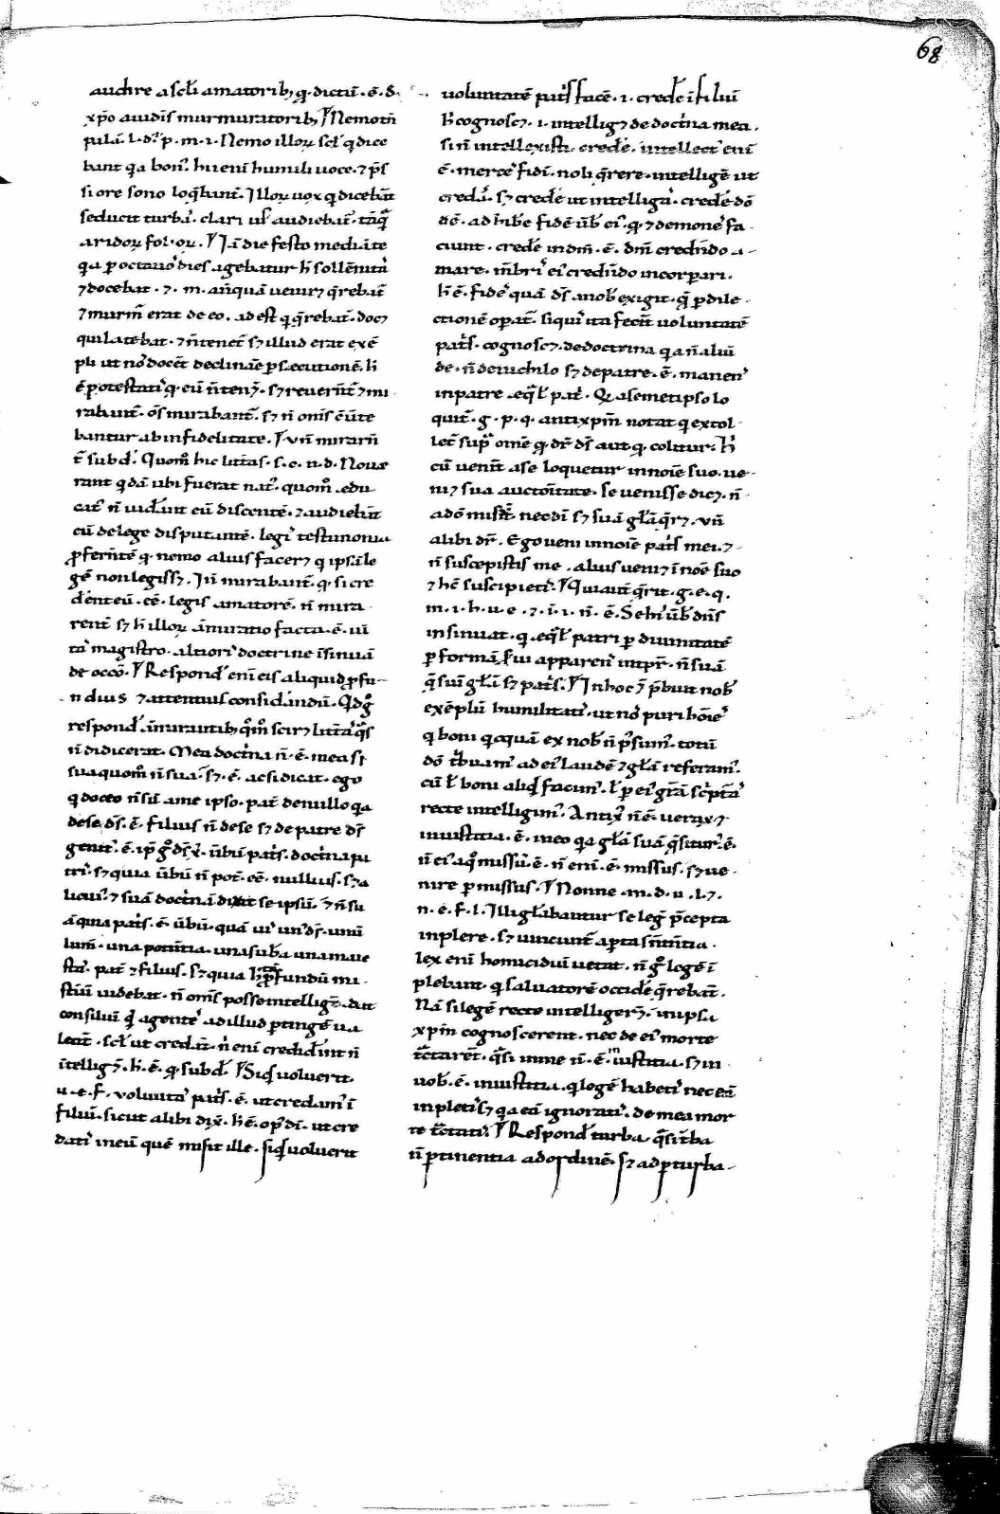 68
audire a scĺi amatorib; q̇ dictū · ē · d̄ ·
xp̄o auidis murmuratorib; Nemo tn̄
pulā · l · d · p · m · i · Nemo illoꝝ scĺ q̇ dice
bant q̇a bon᷒ · hii eni humili uoce · ⁊ p̄s
si ore sono loq̄bant᷒ · Illoꝝ uox q̇ dicebāt
seducit turbā · clari ul̓ audiebat᷒ · tāq̄
aridoꝝ folioꝝ · Iā die festo mediāte
q̇a p octauo dies agebatur h̄ sollēnitā
⁊ docebat · ⁊ · m · an̄quā uenir⁊ q̄rebat᷒
⁊ murm̄ erat de eo · adest q̇ q̄rebat᷒ · doc⁊
qui latebat · ⁊ n̄ tenet᷒ s⁊ illud erat exē
pli ut n̄o docet᷒ declinaē p̄secutionē · h̄
ē potestati᷒ q̇ eū n̄ ten⁊ · s⁊ reuerit᷒ ⁊ mi
rabunt᷒ · oēs mirabant᷒ · s⁊ n̄ om̄s ꝯ̄uerte
bantur ab infidelitate · Vn̄ mirari n̄
t̄ subd᷒ · Quom̄ hic litt̄as · s · c · n · d · Noue
rant q̇dā ubi fuerat nat᷒ · quom̄ edu
cat᷒ n̄ uid̓unt eū discentē · ⁊ audiebāt
eū de lege disputantē · legi᷒ testimonia
p̄ferentē q̇ nemo alius facer⁊ q̇ ipsā le
gē non legiss⁊ · Iīi mirabant᷒ · q̇ si cre
d̓ent eū · eē · legis amatorē · n̄ mira
rent᷒ s⁊ h̄ illoꝝ āmiratio facta · ē · ui
tā magistro · altiori᷒ doctrine īsinuā
de occō · Respond᷒ eni eis aliquid p̄fu
ndius ⁊ attentius consid̓andū · Qd̄ g̊
respond᷒ · āmirantib; q̊m̊ scir⁊ litt̄as q̄s
n̄ didicerat · Mea doct̓na n̄ · ē · mea si
sua quom̊ n̄ sua · s⁊ · ē · ac si dicat · ego
q̇ doceo n̄ sū a me ipso · pat᷒ de nullo q̇a
de se d̄s · ē · filius n̄ de se s⁊ de patre d̄s
genit᷒ · ē · ip̄e g̊ d̄s x̄ · ūbū pat̓s · doct̓na pa
tri᷒ · s⁊ quia ūbū n̄ pot̄ · eē · nullius · s⁊ a
licui᷒ ⁊ suā doct̓nā dixit se ipsū · ⁊ n̄ su
ā quia pat̓s · ē · ūbū · quā ui᷒ un᷒ d̄s · unū
lum̄ · una potētia · una sub̄a una maie
stas · pat᷒ ⁊ filius · s⁊ quia h̄ p̄fundū mi
stiū uidebat · n̄ om̄s posse intellig⁊ · dat
consiliū q̇ agente᷒ ad illud p̄tinge ua
leant · scĺ ut credāt · n̄ eni credid̓int n̄
ītellig⁊ · h̄ · ē · q̇ subd᷒ · Siq̇ uoluerit
u · e · f · uolūta᷒ pat̓s · ē · ut credam᷒ ī
filiū · sicut alibi dix̄ · h̄ ē · op᷒ dī · ut cre
dati᷒ in eū quē misit ille · siq̇ uoluerit
uoluntatē pat̓s facē · i · cred̓e ī filiū
h̄ cognosc⁊ · i · intellig⁊ de doct̓na mea ·
si n̄ intellexisti · cred̓e · intellect᷒ eni
ē · merce᷒ fidei · noli q̄rere · intellig̓e ut
credā᷒ · s⁊ cred̓e ut intelligā᷒ · cred̓e dō
aūt · adhib̓e fidē ūb᷒ ei᷒ · q̇ ⁊ demone᷒ fa
ciunt · cred̓e in dm̄ · ē · dm̄ cred̄ndo a
mare · m̄bri᷒ ei᷒ cred̄ndo incorp̄ari ·
h̄ ē · fide᷒ quā d̄s a nob᷒ exigit · q̄ p dile
ctionē op̄at᷒ · siqui᷒ ita fecit᷒ uoluntatē
pat̓s · cognosc⁊ · de doctrina q̇a n̄ aliū
de · n̄ de nichilo s⁊ de patre · ē · manen᷒
in patre · eq̄l᷒ pat̓ · Q̇ a semetipso lo
quit᷒ · g · p · q · antixp̄m notat q̇ extol
let᷒ sup̄ om̄e q̇ dr̄ d̄s aut q̇ colitur · h̄
cū uenit᷒ a se loquetur in noīe suo · ue
ni⁊ sua auctoritate · se uenisse dic⁊ · n̄
a dō miss̄ · nec dni s⁊ suā gl̄iā q̄r⁊ · vn̄
alibi dr̄ · Ego ueni in noīe pat̓s mei · ⁊
n̄ suscepistis me · alius ueni⁊ ī noē suo
⁊ hc̄ suscipieti᷒ · Qui aut̄ q̄rit · g · e · q ·
m · i · h · u · e · ⁊ · i · i · n̄ · ē · Se hi᷒ ūb᷒ dn̄s
insinuat · q̇ eq̄l᷒ patri p diuinitatē
p formā s̓ui apparen᷒ in tp̄r · n̄ suā
q̄siuit gl̄iā s⁊ pat̓s · In hoc ⁊ p̄buit nob᷒
exēplū humilitati᷒ · ut n̄o puri hoīe᷒
q̇ boni q̇cquā ex nob᷒ n̄ p̄sum᷒ · totū
dō tribuam᷒ ad ei᷒ laudē ⁊ gl̄iā referam᷒ ·
cū l̓ boni aliq̇ facim᷒ · l̓ p ei᷒ gr̄ā sc̓pt̄ā᷒
recte intelligim᷒ · Antix᷒ n̄ ē · uerax ⁊
iniustitia · ē · in eo q̇a gl̄iā suā q̄situr᷒ · ē ·
n̄ ei᷒ a q̇ missu᷒ · ē · n̄ eni · ē · missus · s⁊ ue
nire p̄missus · Nonne · m · d · u · l · ⁊ ·
n · e · f · l · Illi gl̄iabantur se leg᷒ p̄cepta
inplere · s⁊ uincunt᷒ ap̄ta sn̄tentia ·
lex eni homicidiū uetat · n̄ g̊ legē ī
plebant · q̇ saluatorē occid̓e q̄rebāt ·
Nā si legē recte intelliger⁊ · in ipsa
xp̄m cognoscerent · nec de ei᷒ morte
tractarēt · q̄si in me n̄ · ē · iniustitia · s⁊ in
uob᷒ · ē · iniustitia · q̇ legē habeti᷒ nec eā
inpleti᷒ s⁊ q̇a eā ignorati᷒ · de mea mor
te tractati᷒ · Respond᷒ turba q̄si t̓ba
n̄ p̄tinentia ad ordinē · s⁊ ad p̄turba